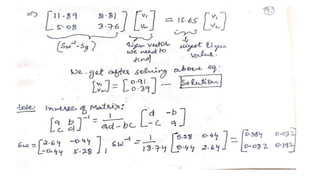 ⇒ [11.89 8.81 / 5.08 3.76] [v₁ / v₂] = 15.65 [v₁ / v₂]
(Sw⁻¹·SB) Eigen vector we need to find Highest Eigen Value.
We get after solving above eq:
[v₁ / v₂] = [0.91 / 0.39] — Solution
Note: Inverse of Matrix:
[a b / c d]⁻¹ = 1/(ad-bc) [d -b / -c a]
Sw = [2.64 -0.44 / -0.44 5.28], Sw⁻¹ = 1/13.74 [5.28 0.44 / 0.44 2.64] = [0.384 0.032 / 0.032 0.192]